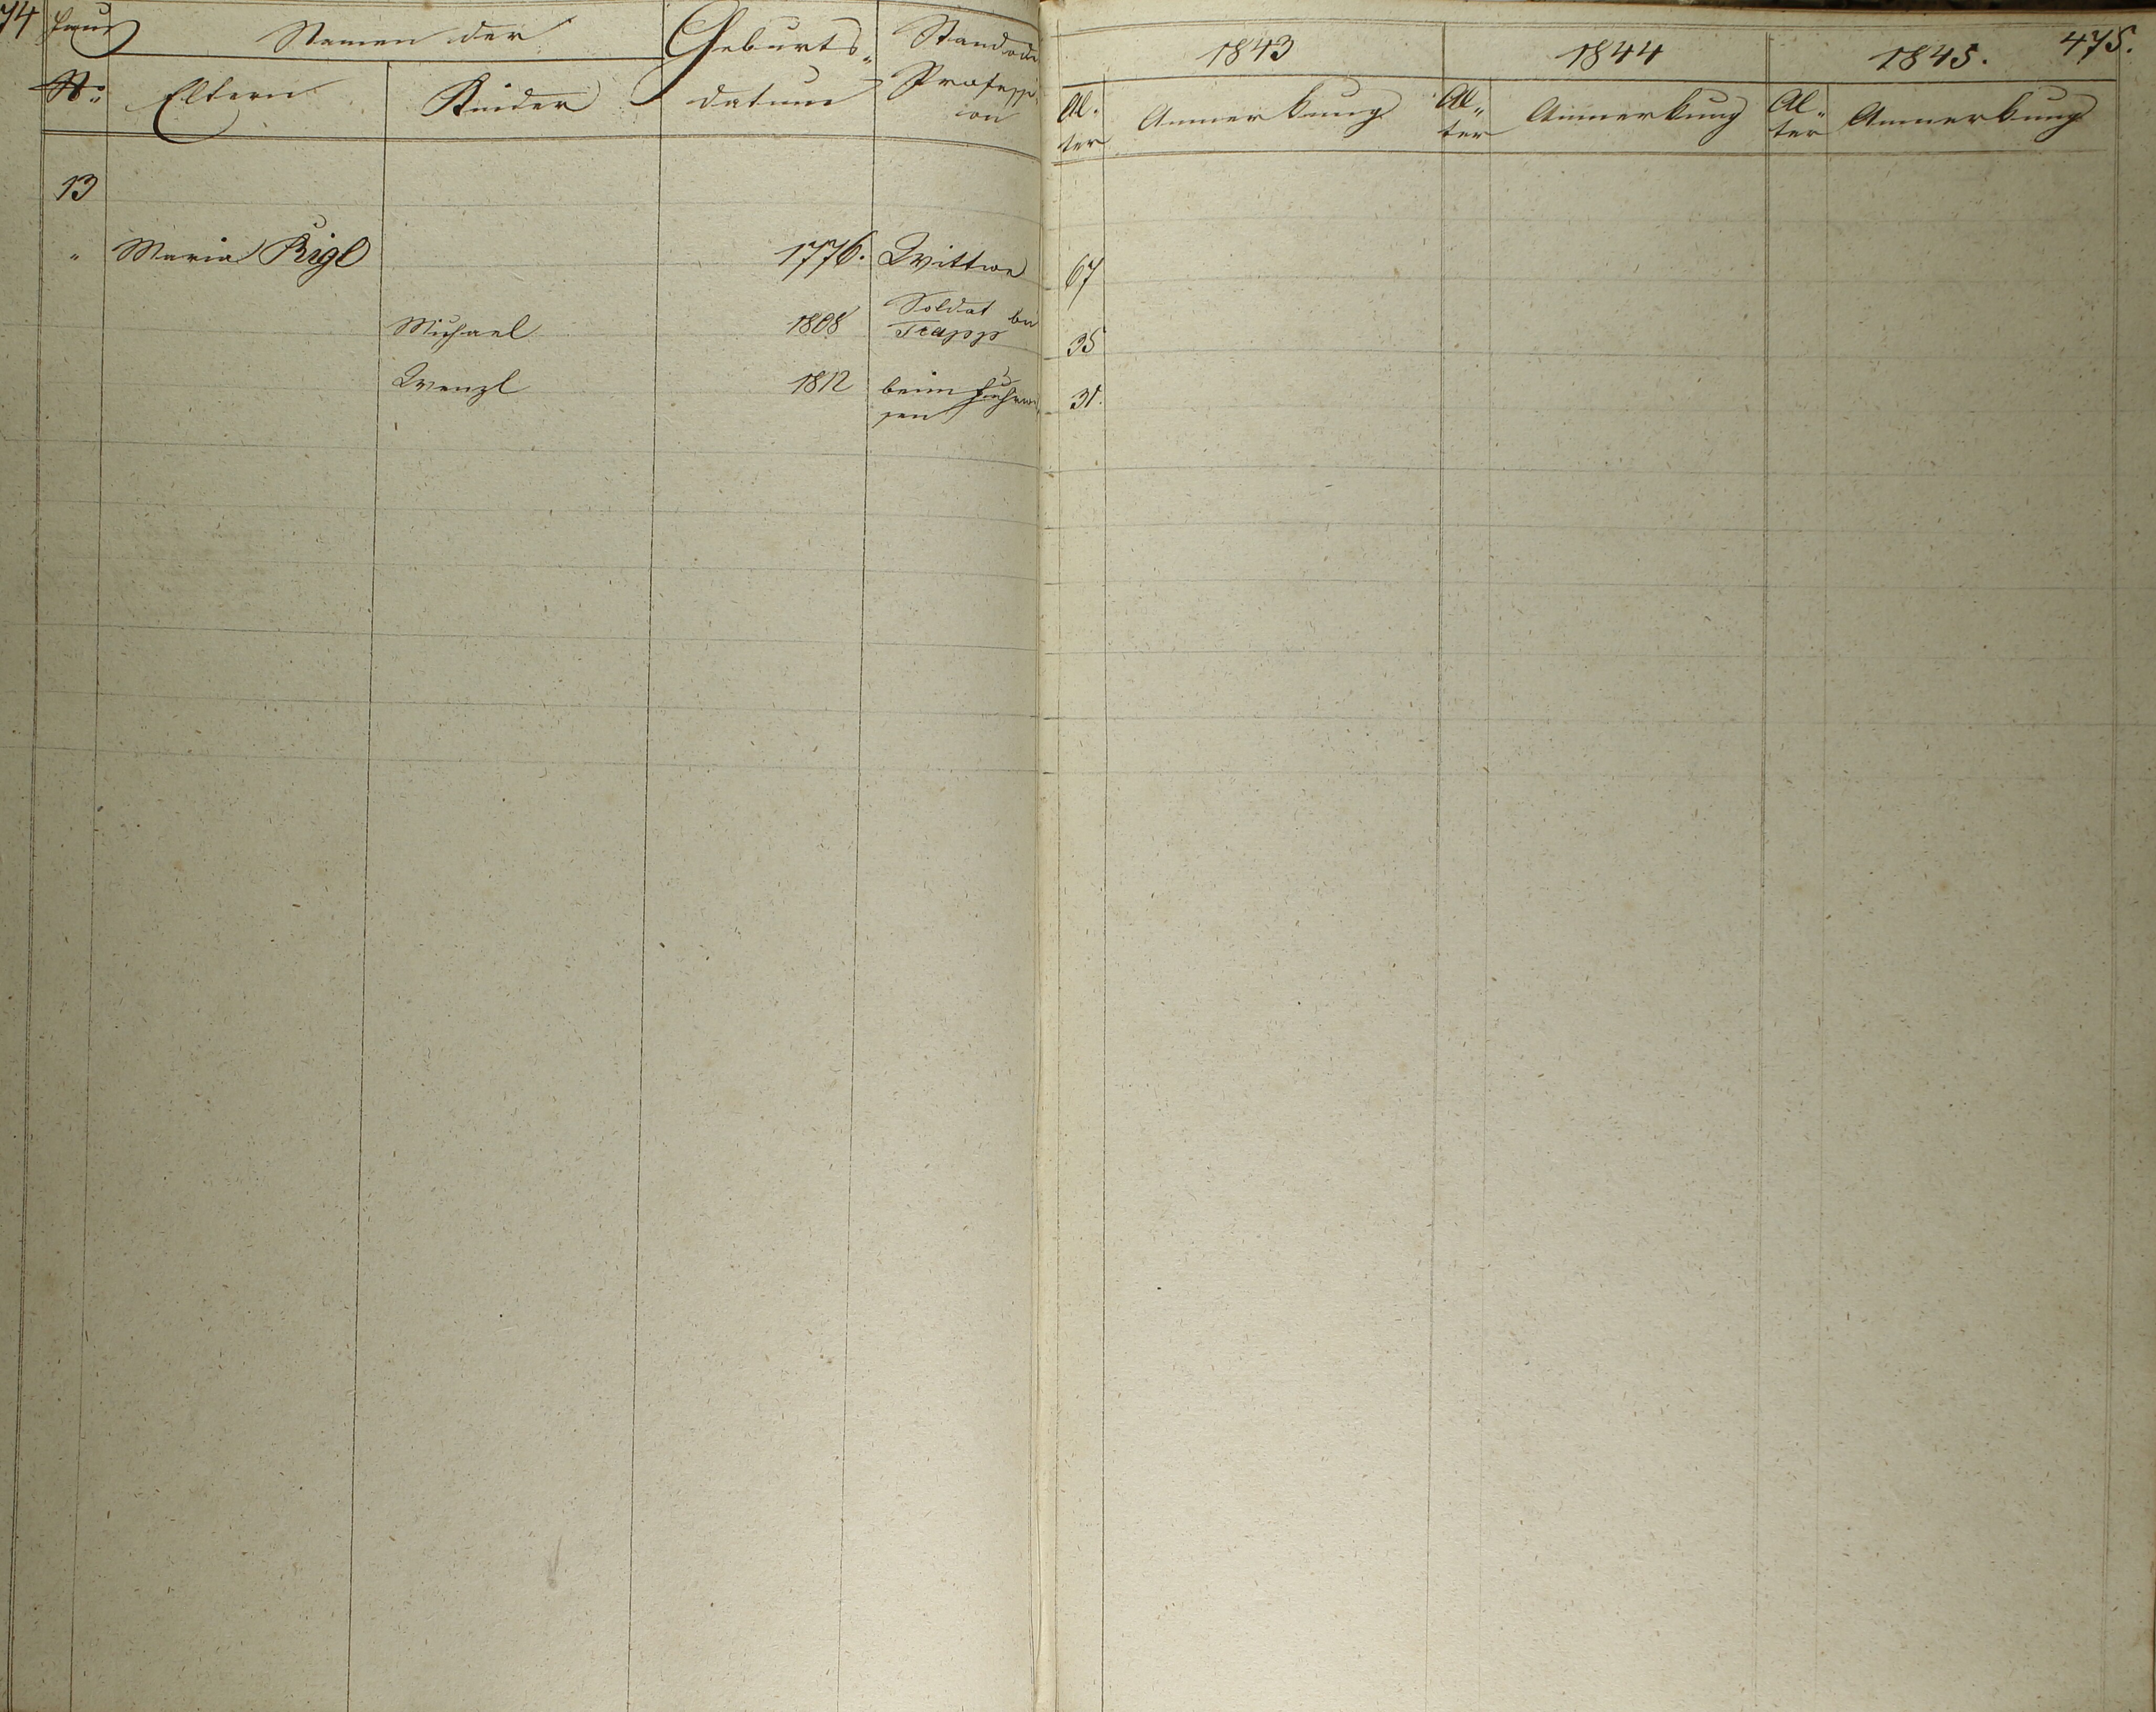 74
Haus
No.
Namen der
Eltern
Kinder
Geburts-
datum
Stand oder
Professi-
on
1843
1844
1845.
475.
Al-
ter
Anmerkung
Al-
ter
Anmerkung
Al-
ter
Anmerkung
13
" Maria Rigl 1776. Wittwe 67
Michael 1808 Soldat bei
Trapp 35
Wenzl 1812 beim Fuhrwe-
sen 31.